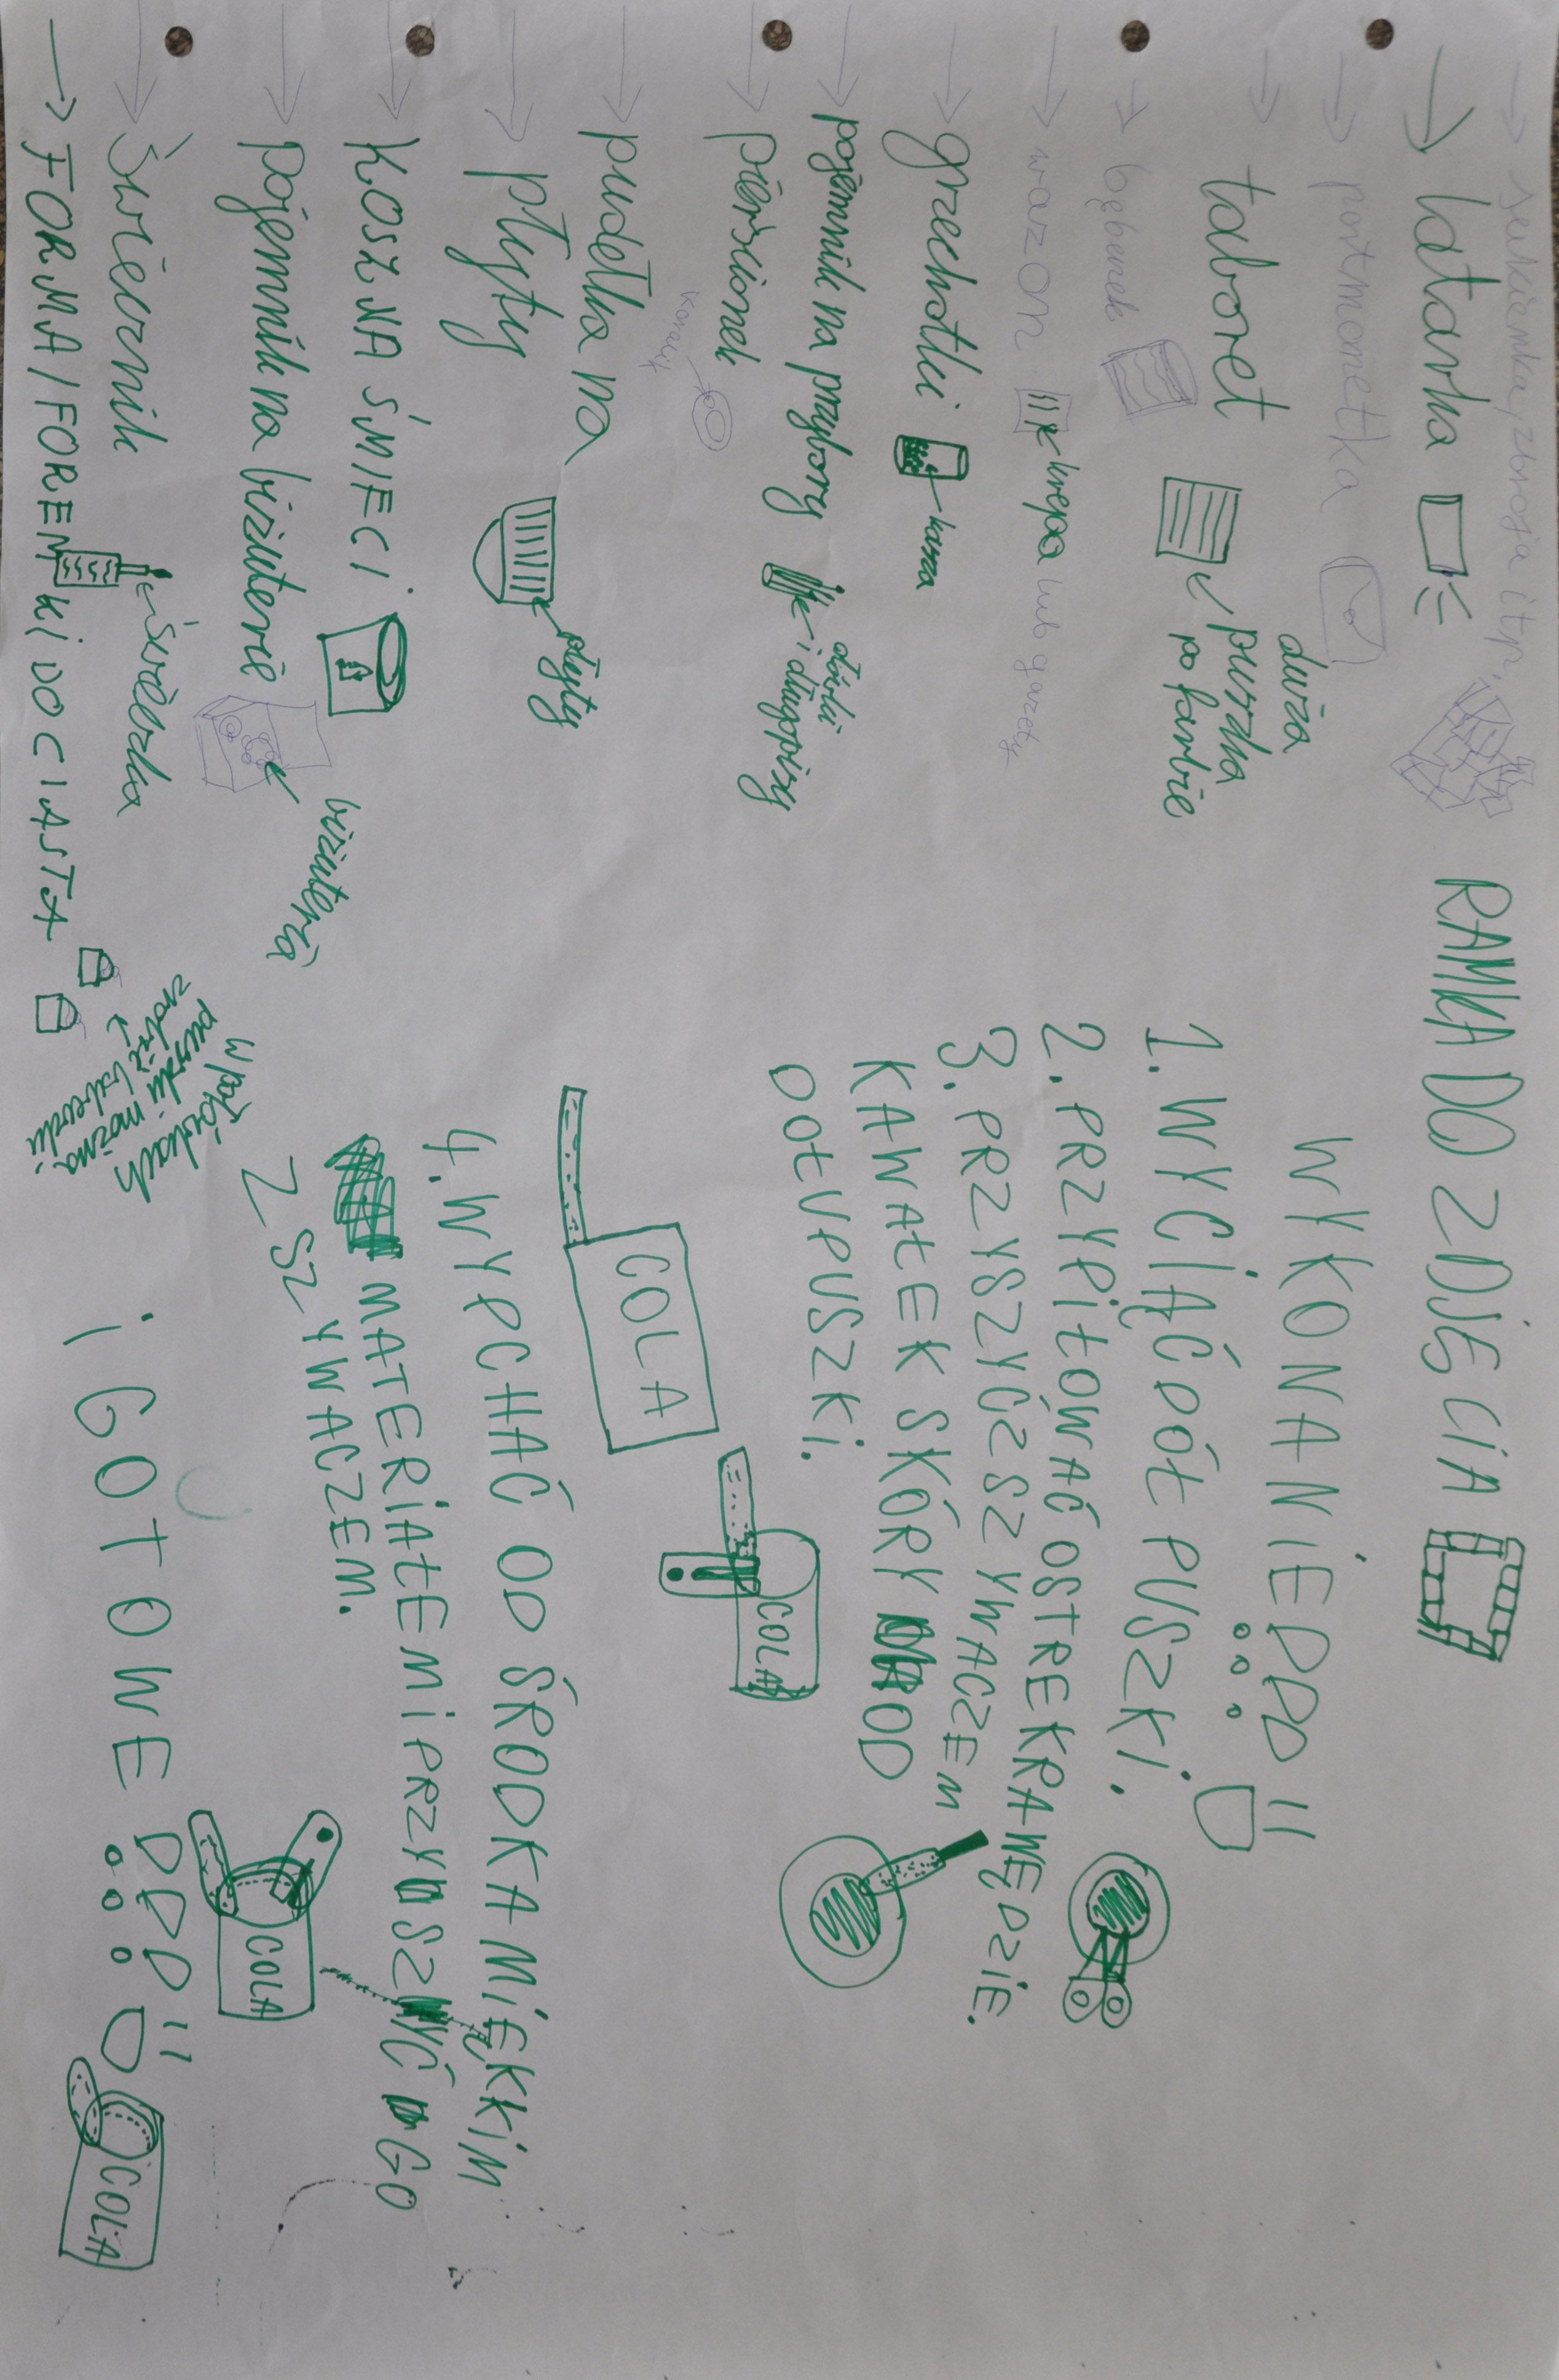 → sukienka, zbroja itp.
→ latarka
RAMKA DO ZDJĘCIA
→ portmonetka
→ taboret
duża
puszka
po farbie
→ bębenek
→ wazon
krepa lub gazety
→ grzechotki
kasza
→ pojemnik na przybory
ołówki
i długopisy
→ pierścionek
koralik
→ pudełka na
→ płyty
płyty
→ KOSZ NA ŚMIECI
→ pojemnik na biżuterie
biżuteria
→ świecznik
świeczka
→ FORMA/FOREMKI DO CIASTA
w pokrówkach
puszki można
zrobić babeczki.
WYKONANIE
1. WYCIĄĆ DÓŁ PUSZKI.
2. PRZYPIŁOWAĆ OSTRE KRAWĘDZIE.
3. PRZYSZYĆ ZSZYWACZEM
KAWAŁEK SKÓRY OD
DOŁU PUSZKI.
COLA
COLA
4. WYPCHAĆ OD ŚRODKA MIĘKKIM
MATERIAŁEM I PRZYSZYĆ GO
ZSZYWACZEM.
COLA
I GOTOWE
COLA